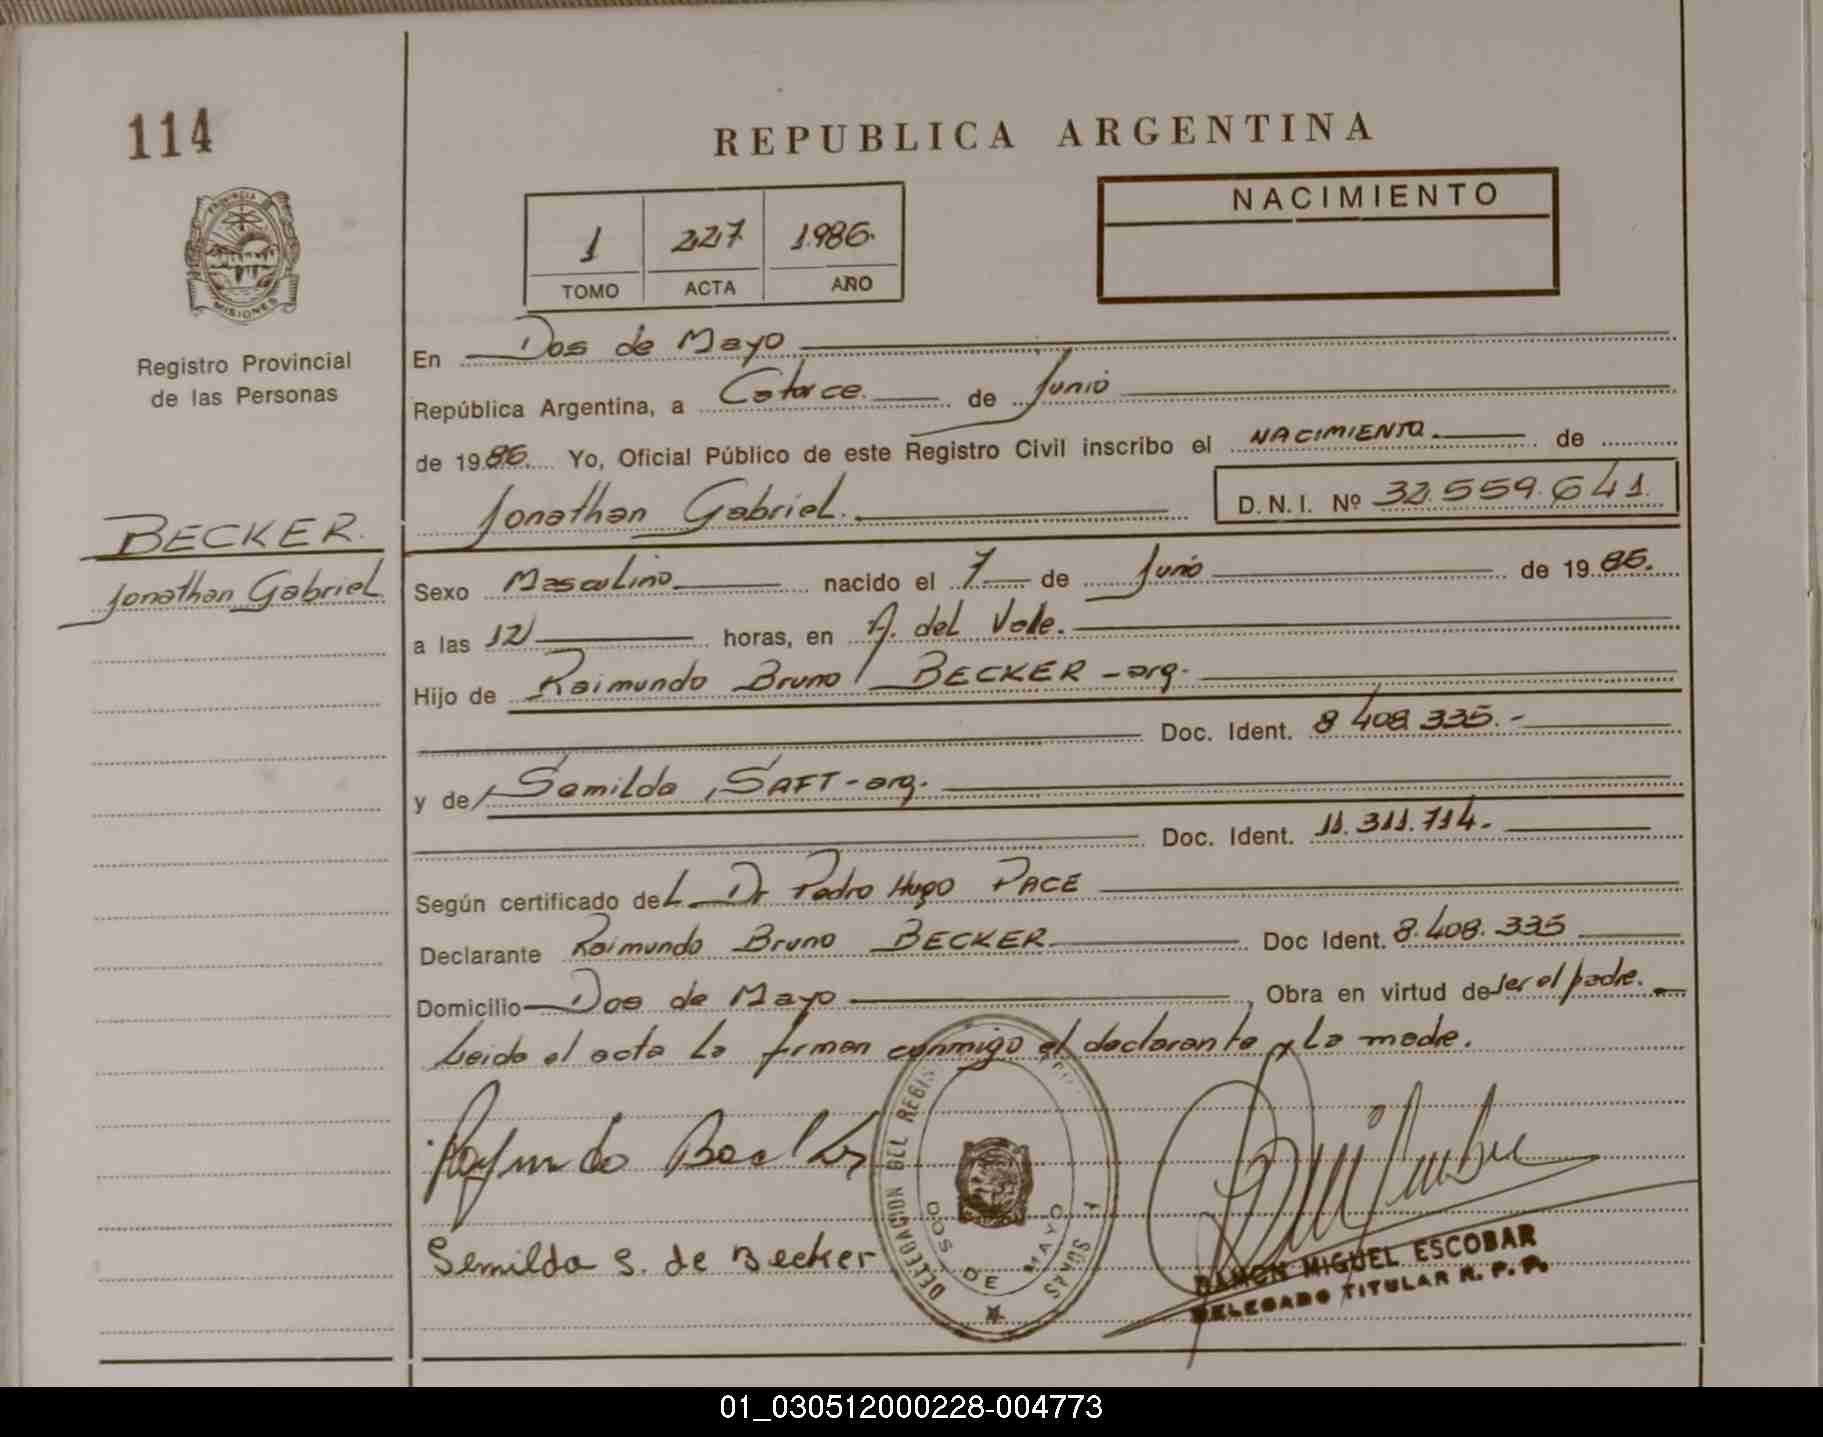 114
REPUBLICA ARGENTINA
NACIMIENTO
1 227 1986.
TOMO ACTA AÑO
PROVINCIA
MISIONES
Registro Provincial
de las Personas
En Dos de Mayo
República Argentina, a Catorce. de Junio
de 1986. Yo, Oficial Público de este Registro Civil inscribo el NACIMIENTO de
Jonathan Gabriel. D.N.I. Nº 32.559.641.
BECKER.
Jonathan Gabriel
Sexo Masculino nacido el 7 de Junio de 1986.
a las 12 horas, en A. del Valle.
Hijo de Raimundo Bruno BECKER - arg.
Doc. Ident. 8 408 335.-
y de Semilda SAFT - arg.
Doc. Ident. 11.311.714.
Según certificado del Dr Pedro Hugo PACE
Declarante Raimundo Bruno BECKER Doc Ident. 8.408.335
Domicilio Dos de Mayo, Obra en virtud de ser el padre.
Leida el acta la firman conmigo el declarante y la madre.
Semilda S. de Becker
DELEGACION DEL REGIS
DOS DE MAYO
RAMON MIGUEL ESCOBAR
DELEGADO TITULAR R. P. P.
01_030512000228-004773